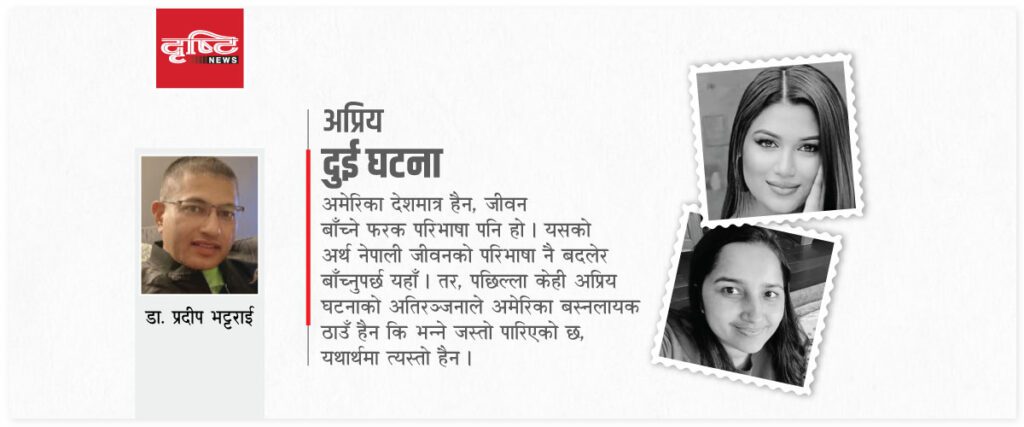 दृष्टि
NEWS
अप्रिय
दुई घटना
अमेरिका देशमात्र हैन, जीवन
बाँच्ने फरक परिभाषा पनि हो । यसको
अर्थ नेपाली जीवनको परिभाषा नै बदलेर
बाँच्नुपर्छ यहाँ । तर, पछिल्ला केही अप्रिय
घटनाको अतिरञ्जनाले अमेरिका बस्नलायक
ठाउँ हैन कि भन्ने जस्तो पारिएको छ,
यथार्थमा त्यस्तो हैन ।
डा. प्रदीप भट्टराई